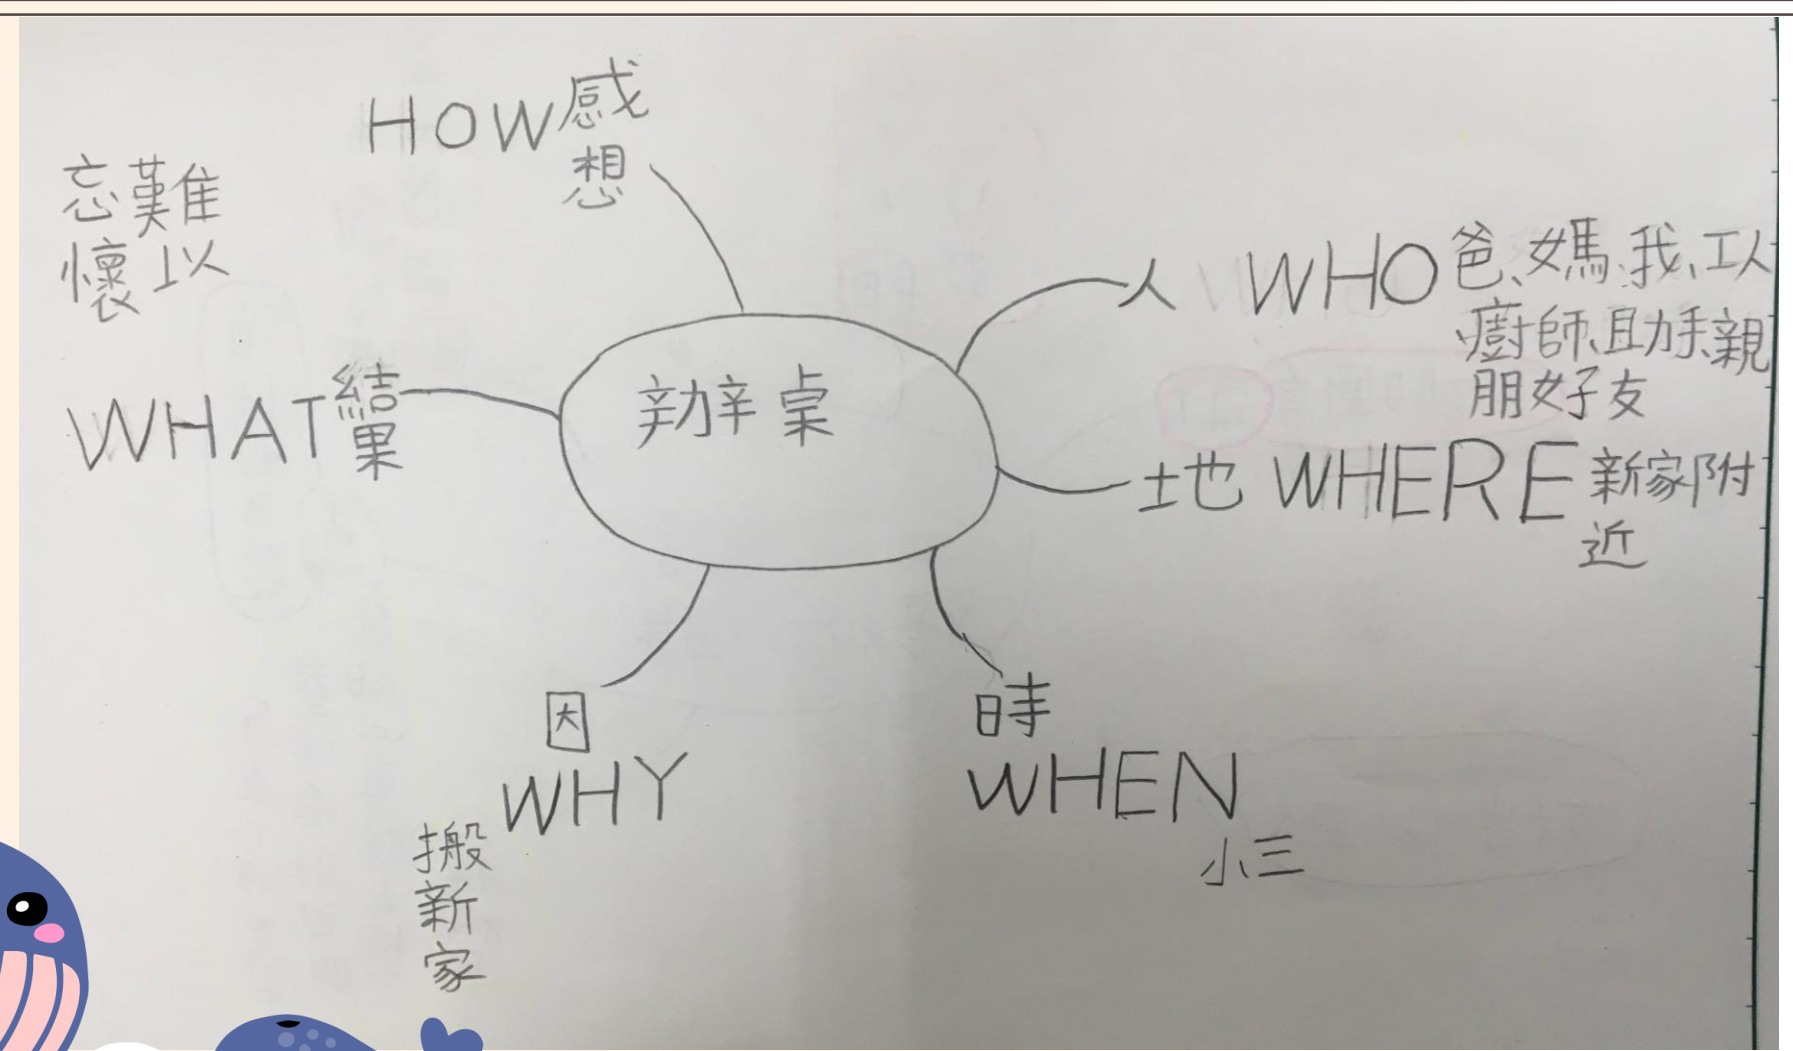 HOW感
想
難以
忘懷
WHAT結
果
辦桌
人 WHO爸、媽、我、工人
、廚師、助手、親
朋好友
地 WHERE新家附
近
時
WHEN
小三
因
WHY
搬
新
家